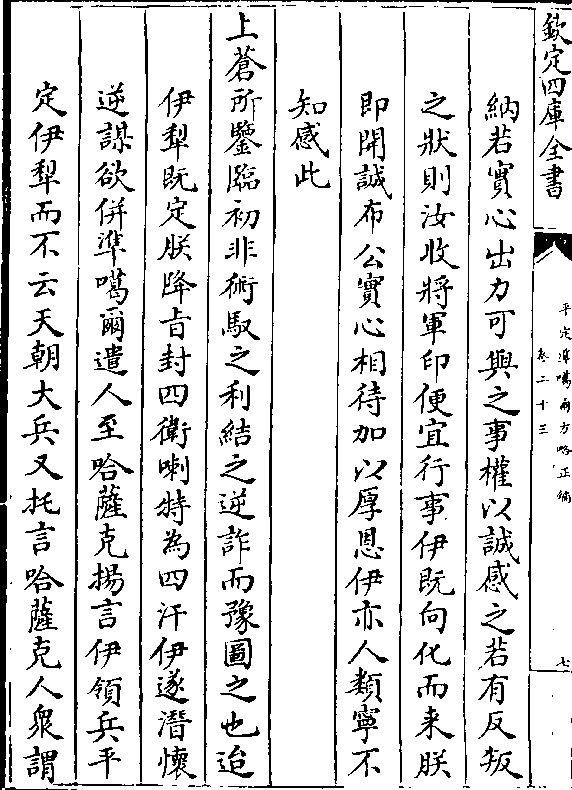 欽定四庫全書
平定準噶爾方略正編
卷二十三
七
納若實心出力可與之事權以誠感之若有反叛
之狀則汝收將軍印便宜行事伊既向化而来朕
即開誠布公實心相待加以厚恩伊亦人類寧不
知感此
上蒼所鑒臨初非術馭之利結之逆詐而豫圖之也迨
伊犁既定朕降㫖封四衛喇特為四汗伊遂潛懷
逆謀欲併準噶爾遣人至哈薩克揚言伊領兵平
定伊犁而不云天朝大兵又托言哈薩克人衆謂